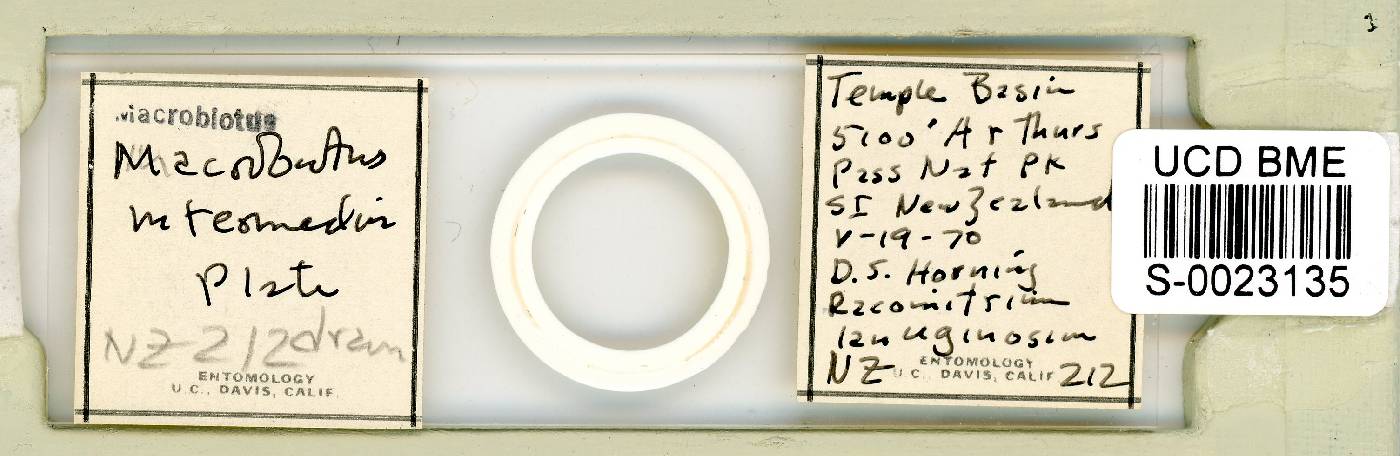 Macrobiotus
Macrobiotus
intermedius
Plate
NZ-212 drawn
ENTOMOLOGY
U.C., DAVIS, CALIF.
Temple Basin
5100' Arthurs
Pass Nat PK
SI New Zealand
V-19-70
D.S. Horning
Racomitrium
lanuginosum
NZ 212
ENTOMOLOGY
U.C., DAVIS, CALIF
UCD BME
S-0023135
3